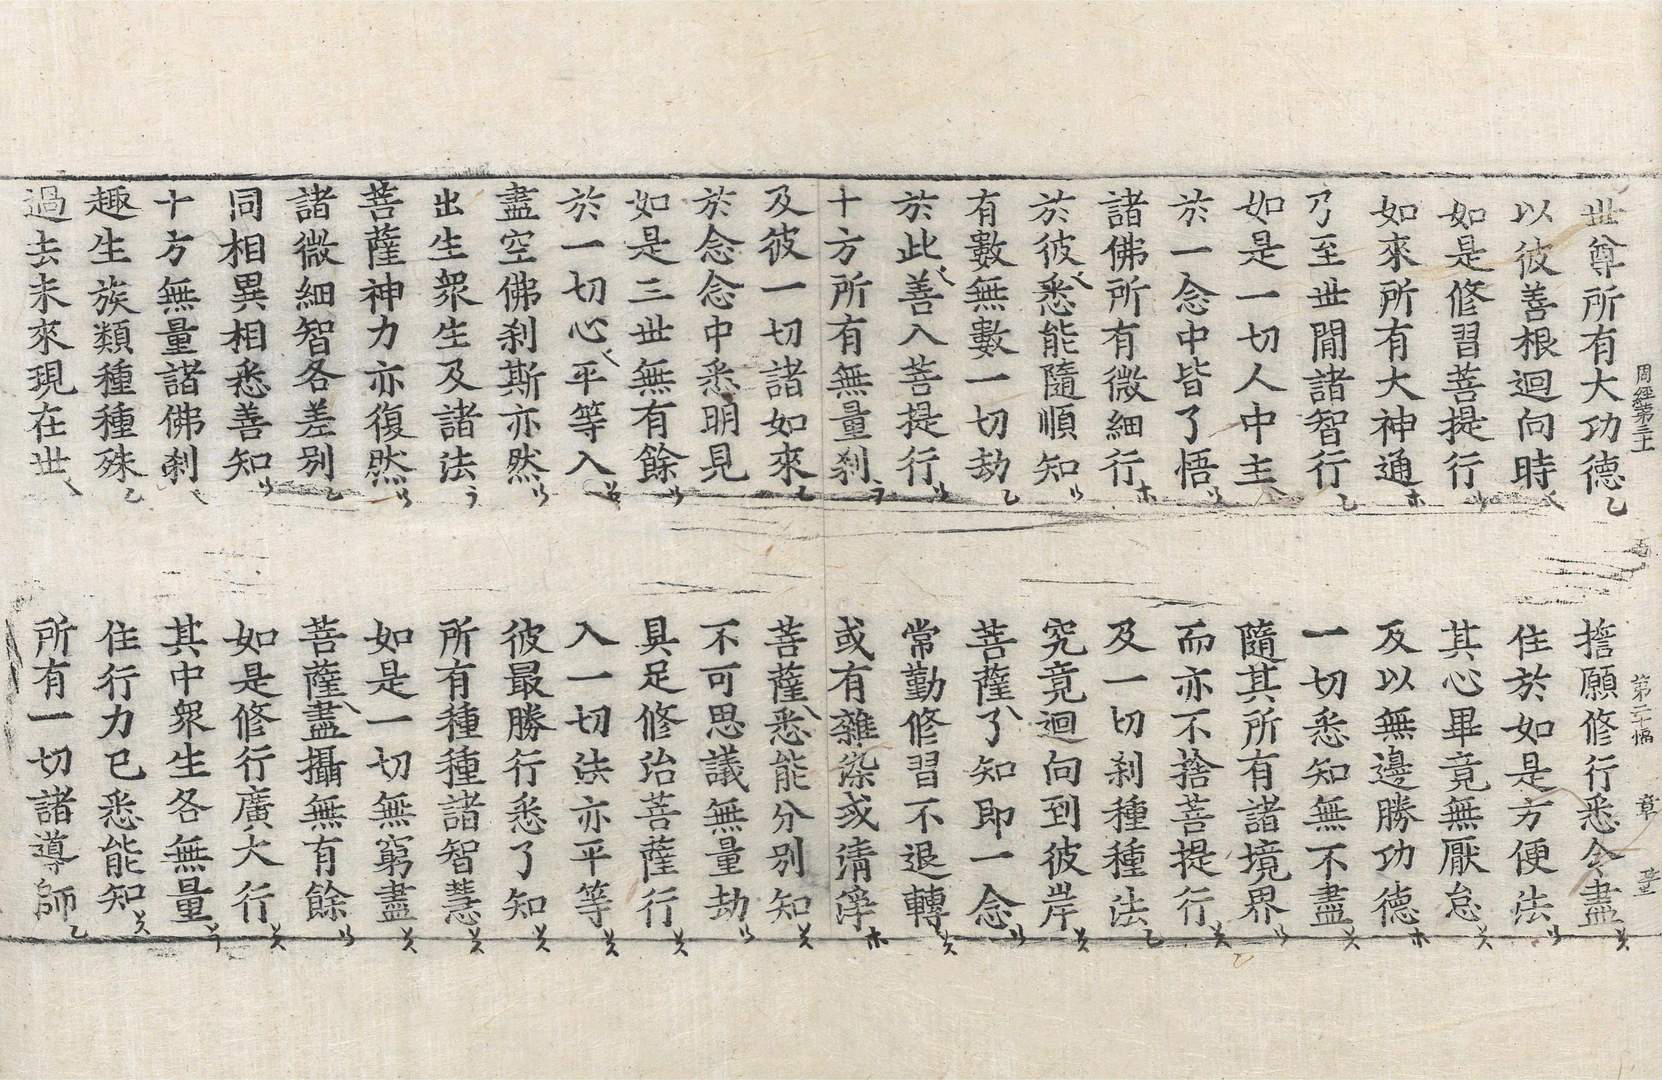 周經第三十 第二十幅 章
世尊所有大功德 擔願修行悉令盡
以彼善根迴向時 住於如是方便法
如是修習菩提行 其心畢竟無厭怠
如來所有大神通 及以無邊勝功德
乃至世間諸智行 一切悉知無不盡
如是一切人中主 隨其所有諸境界
於一念中皆了悟 而亦不捨菩提行
諸佛所有微細行 及一切刹種種法
於彼悉能隨順知 究竟迴向到彼岸
有數無數一切劫 菩薩了知即一念
於此善入菩提行 常勤修習不退轉
十方所有無量刹 或有雜染或清淨
及彼一切諸如來 菩薩悉能分別知
於念念中悉明見 不可思議無量劫
如是三世無有餘 具足修治菩薩行
於一切心平等入 入一切法亦平等
盡空佛刹斯亦然 彼最勝行悉了知
出生衆生及諸法 所有種種諸智慧
菩薩神力亦復然 如是一切無窮盡
諸微細智各差別 菩薩盡攝無有餘
同相異相悉善知 如是修行廣大行
十方無量諸佛刹 其中衆生各無量
趣生族類種種殊 住行力已悉能知
過去未來現在世 所有一切諸導師